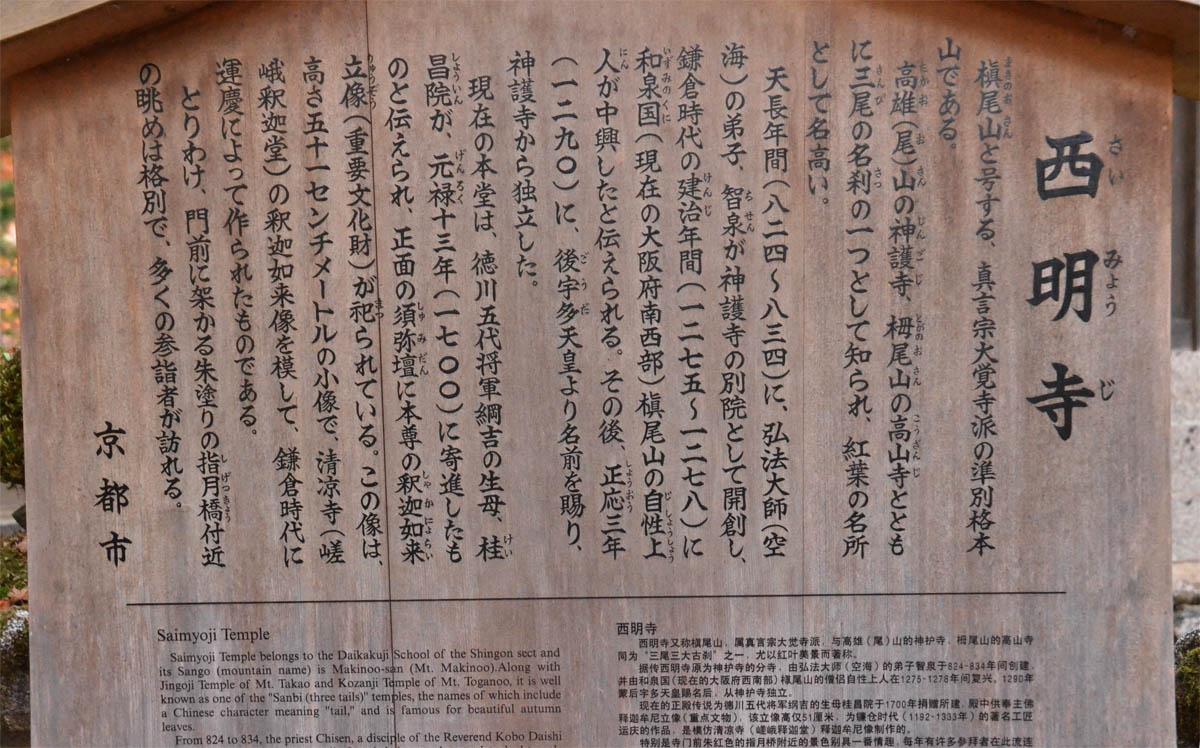 西明寺
さいみょうじ
槇尾山と号する、真言宗大覚寺派の準別格本
まきのおさん
山である。
高雄（尾）山の神護寺、栂尾山の高山寺ととも
たかおおさんじんごじとがのおさんこうざんじ
に三尾の名刹の一つとして知られ、紅葉の名所
さんびさつ
として名高い。
天長年間（八二四～八三四）に、弘法大師（空
海）の弟子、智泉が神護寺の別院として開創し、
ちせん
鎌倉時代の建治年間（一二七五～一二七八）に
けんじ
和泉国（現在の大阪府南西部）槇尾山の自性上
いずみのくにじしょうしょう
人が中興したと伝えられる。その後、正応三年
にんしょうおう
（一二九〇）に、後宇多天皇より名前を賜り、
ごうだ
神護寺から独立した。
現在の本堂は、徳川五代将軍綱吉の生母、桂
けい
昌院が、元禄十三年（一七〇〇）に寄進したも
しょういんげんろく
のと伝えられ、正面の須弥壇に本尊の釈迦如来
しゅみだんしゃかにょらい
立像（重要文化財）が祀られている。この像は、
りゅうぞうまつ
高さ五十一センチメートルの小像で、清凉寺（嵯
峨釈迦堂）の釈迦如来像を模して、鎌倉時代に
運慶によって作られたものである。
とりわけ、門前に架かる朱塗りの指月橋付近
しげつきょう
の眺めは格別で、多くの参詣者が訪れる。
京都市
Saimyoji Temple
Saimyoji Temple belongs to the Daikakuji School of the Shingon sect and
its Sango (mountain name) is Makinoo-san (Mt. Makinoo).Along with
Jingoji Temple of Mt. Takao and Kozanji Temple of Mt. Toganoo, it is well
known as one of the "Sanbi (three tails)" temples, the names of which include
a Chinese character meaning "tail," and is famous for beautiful autumn
leaves.
From 824 to 834, the priest Chisen, a disciple of the Reverend Kobo Daishi
西明寺
西明寺又称槇尾山，属真言宗大觉寺派，与高雄（尾）山的神护寺，栂尾山的高山寺
同为“三尾三大古刹”之一，尤以红叶美景而著称。
据传西明寺原为神护寺的分寺，由弘法大师（空海）的弟子智泉于824-834年间创建，
并由和泉国（现在的大阪府西南部）槇尾山的僧侣自性上人在1275-1278年间复兴，1290年
蒙后宇多天皇赐名后，从神护寺独立。
现在的正殿传说为德川五代将军纲吉的生母桂昌院于1700年捐赠所建，殿中供奉主佛
释迦牟尼立像（重点文物），该立像高仅51厘米，为镰仓时代（1192-1333年）的著名工匠
运庆的作品，是模仿清凉寺（嵯峨释迦堂）释迦牟尼像制作的。
特别是寺门前朱红色的指月桥附近的景色别具一番情趣，每年有许多参拜者在此流连